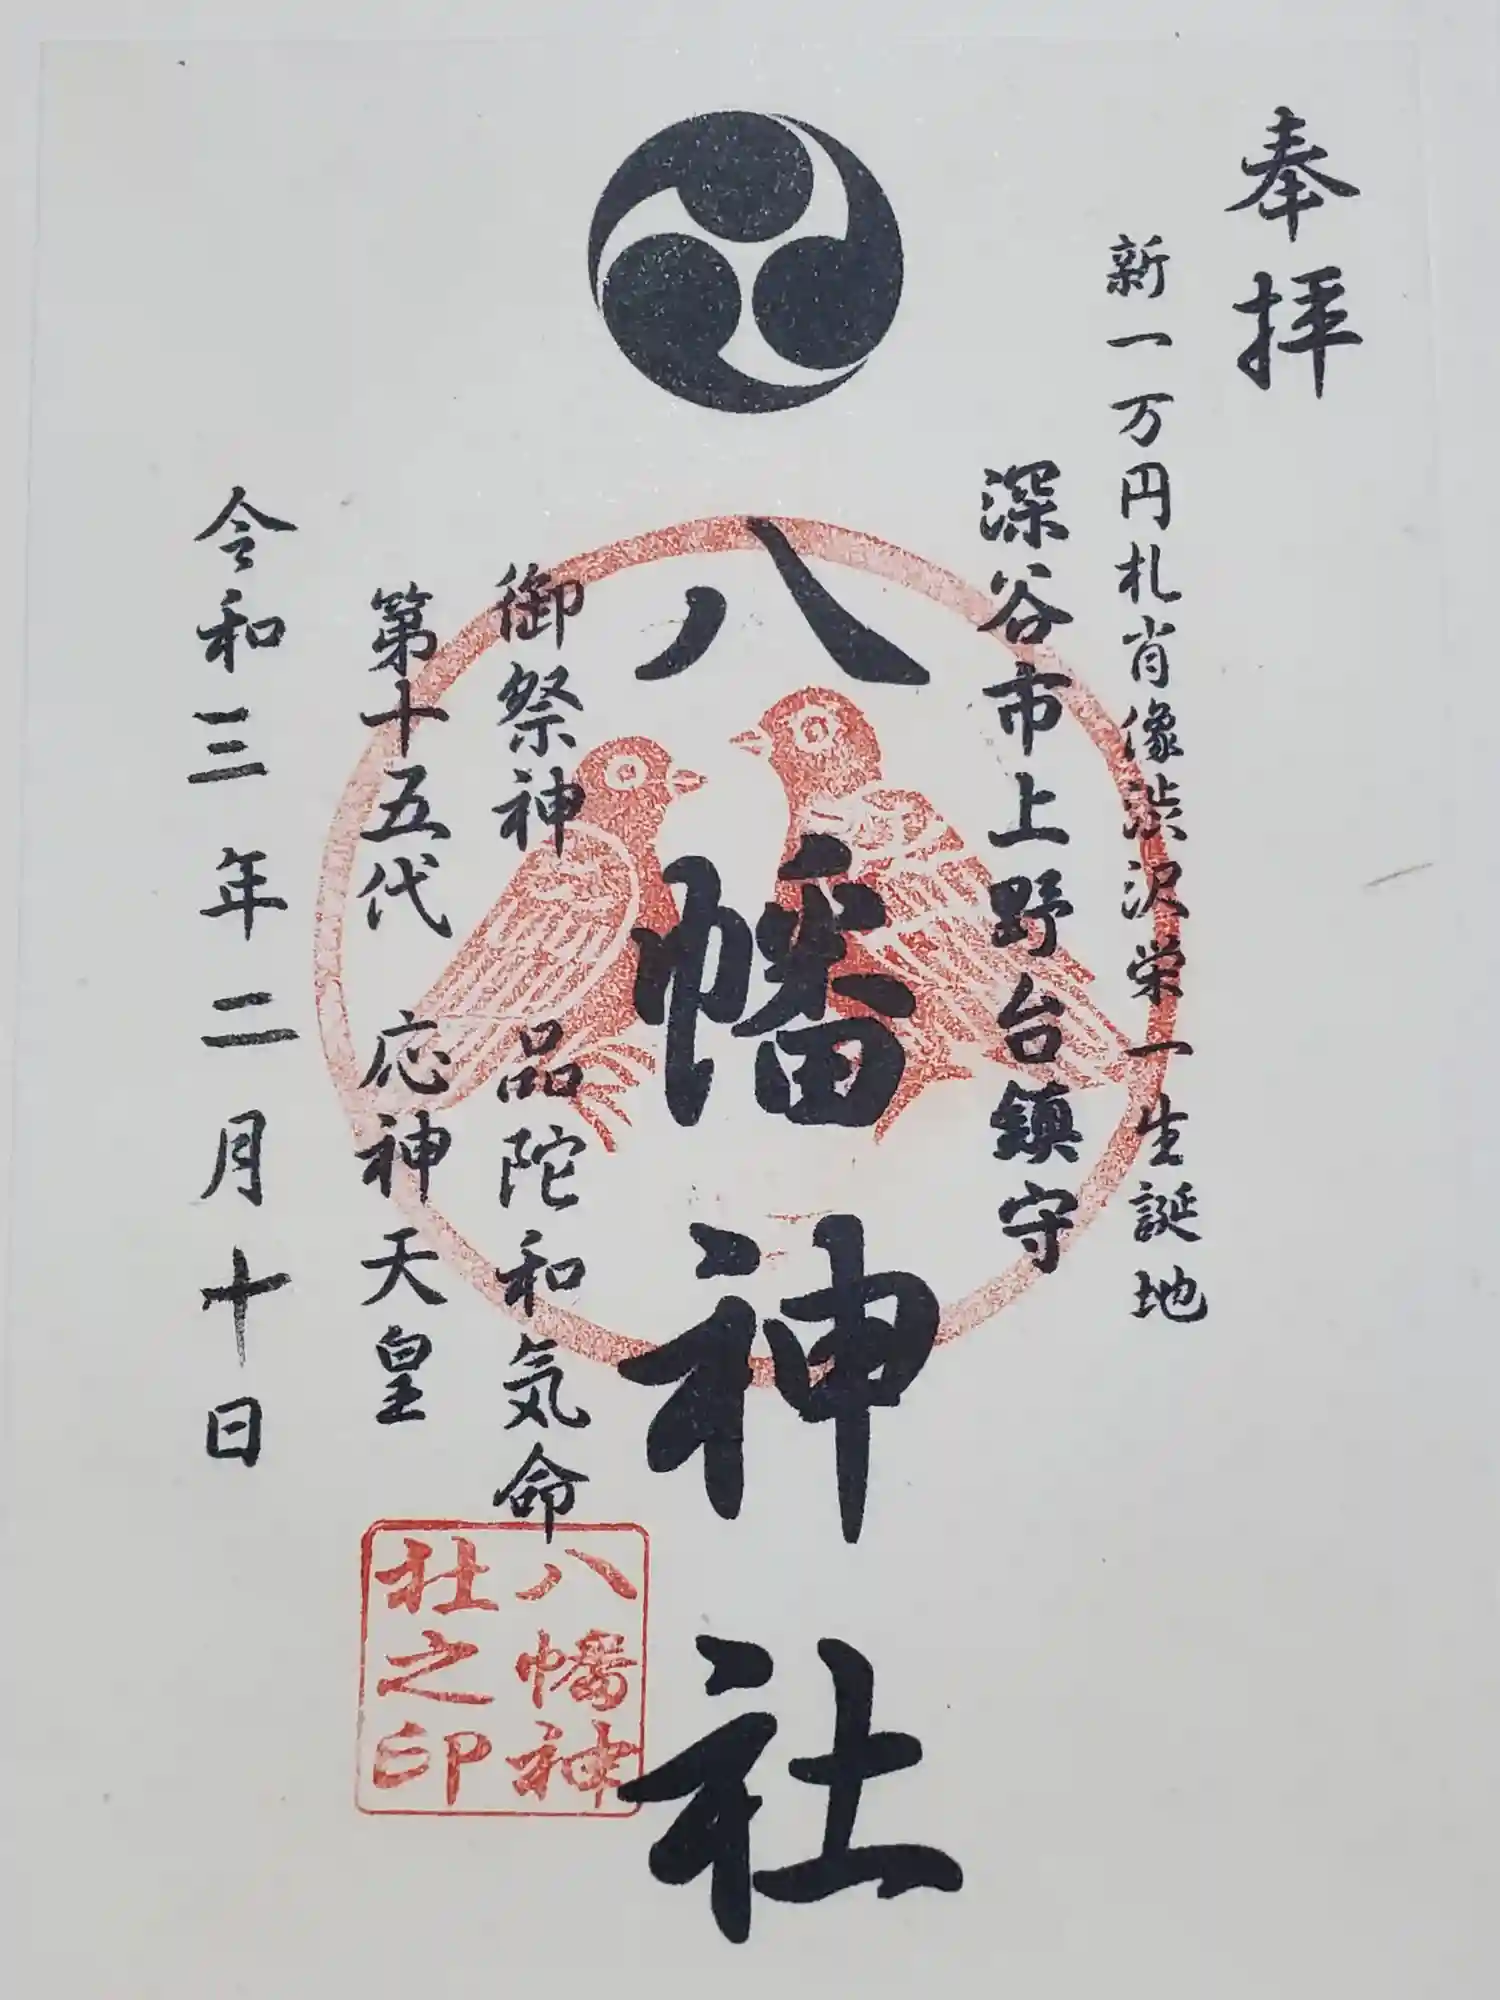 奉拝
新一万円札肖像渋沢栄一生誕地
深谷市上野台鎮守
八幡神社
御祭神 品陀和気命
第十五代 応神天皇
令和三年二月十日
八幡神
社之印